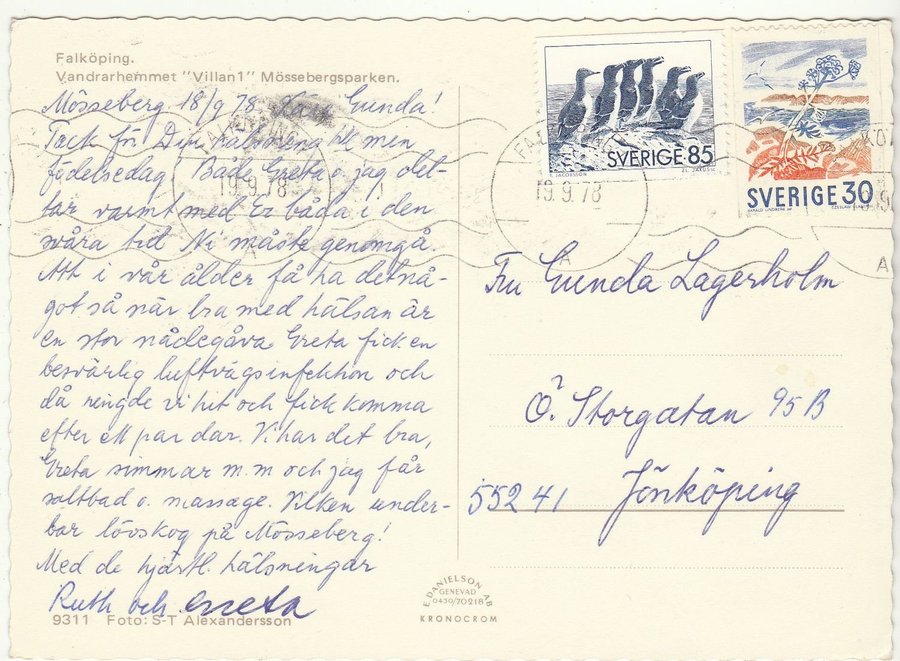 Falköping.
Vandrarhemmet "Villan1" Mössebergsparken.
Mösseberg 18/9 78. Kära Gunda!
Tack för Din hälsning till min
födelsedag. Både Greta o. jag deltar
tar varmt med Er båda i den
svåra tid Ni måste genomgå.
Att i vår ålder få ha det nå-
got så när bra med hälsan är
en stor nådegåva. Greta fick en
besvärlig luftvägsinfektion och
då ringde vi hit och fick komma
efter ett par dar. Vi har det bra,
Greta simmar m.m och jag får
saltbad o. massage. Vilken under-
bar lövskog på Mösseberg!
Med de hjärtl. hälsningar
Ruth och Greta
9311 Foto: S-T Alexandersson
E. DANIELSON AB
GENEVAD
0430/70218
KRONOCROM
SVERIGE 85
SVERIGE 30
FALKÖPING
19.9.78
A
19.9.78
A
Fru Gunda Lagerholm
Ö. Storgatan 95 B
552 41 Jönköping